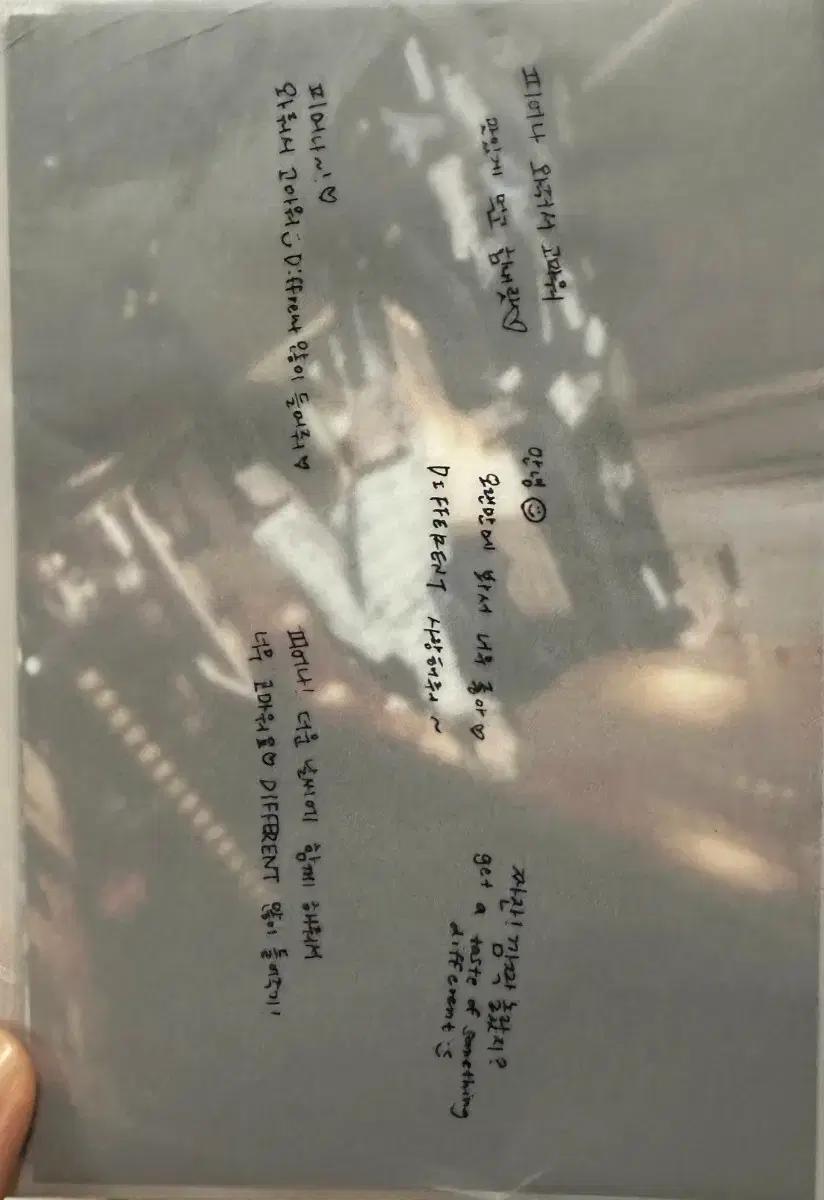 피어나 와줘서 고마워
맛있게 먹고 힘내랏♡
안녕 ☺
오랜만에 봐서 너무 좋아♡
DIFFERENT 사랑해줘~
짜잔! 깜짝 놀랐지?
get a taste of something
different :)
피어나~!♡
와줘서 고마워 :) Different 많이 들어줘♡
피어나! 더운 날씨에 함께 해줘서
너무 고마워요♡ DIFFERENT 많이 들어주기!